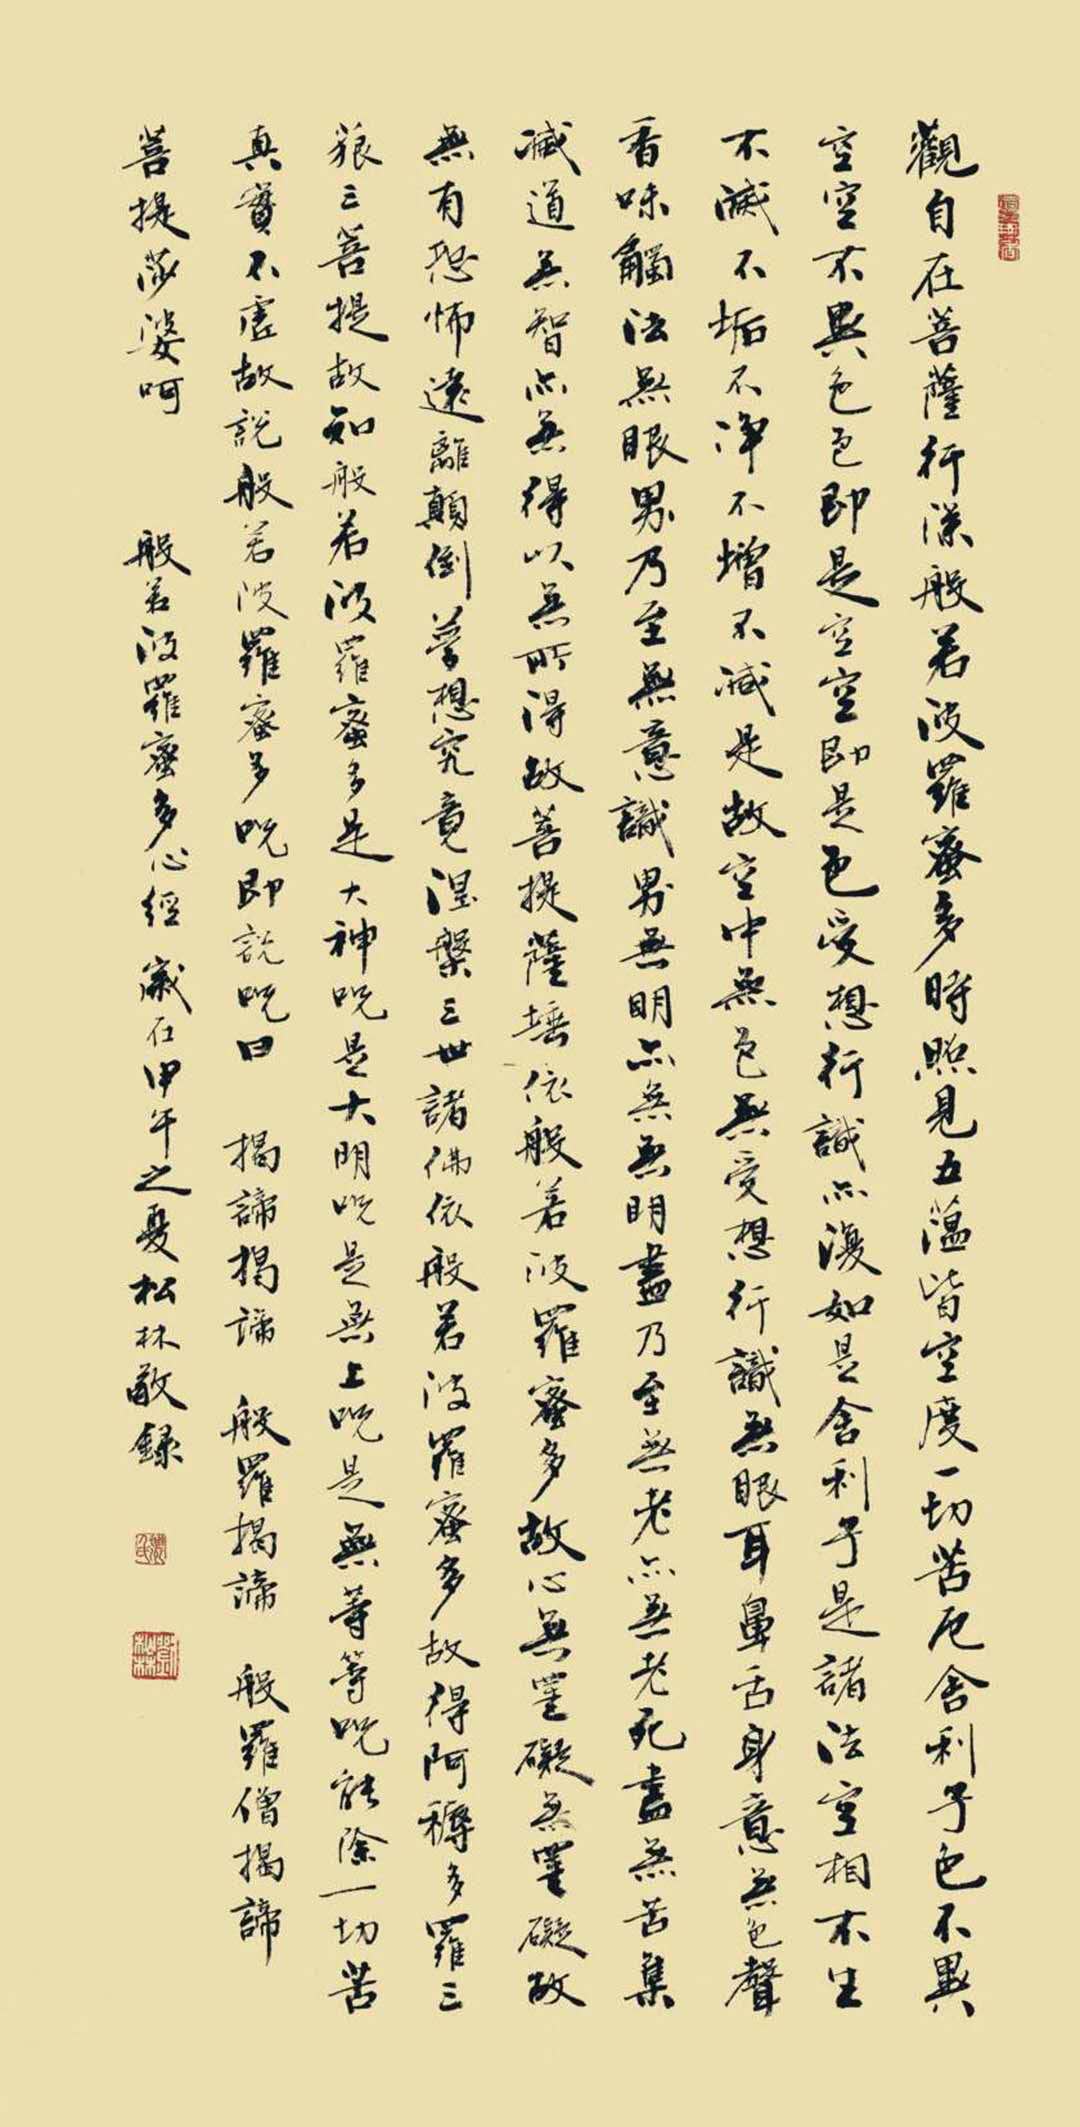 觀自在菩薩行深般若波羅蜜多時照見五蘊皆空度一切苦厄舍利子色不異
空空不異色色即是空空即是色受想行識亦復如是舍利子是諸法空相不生
不滅不垢不淨不增不減是故空中無色無受想行識無眼耳鼻舌身意無色聲
香味觸法無眼界乃至無意識界無明亦無無明盡乃至無老亦無老死盡無苦集
滅道無智亦無得以無所得故菩提薩埵依般若波羅蜜多故心無罣礙無罣礙故
無有恐怖遠離顛倒夢想究竟涅槃三世諸佛依般若波羅蜜多故得阿耨多羅三
藐三菩提故知般若波羅蜜多是大神咒是大明咒是無上咒是無等等咒能除一切苦
真實不虛故說般若波羅蜜多咒即說咒曰 揭諦揭諦 般羅揭諦 般羅僧揭諦
菩提莎婆呵 般若波羅蜜多心經 歲在甲午之夏松林敬錄